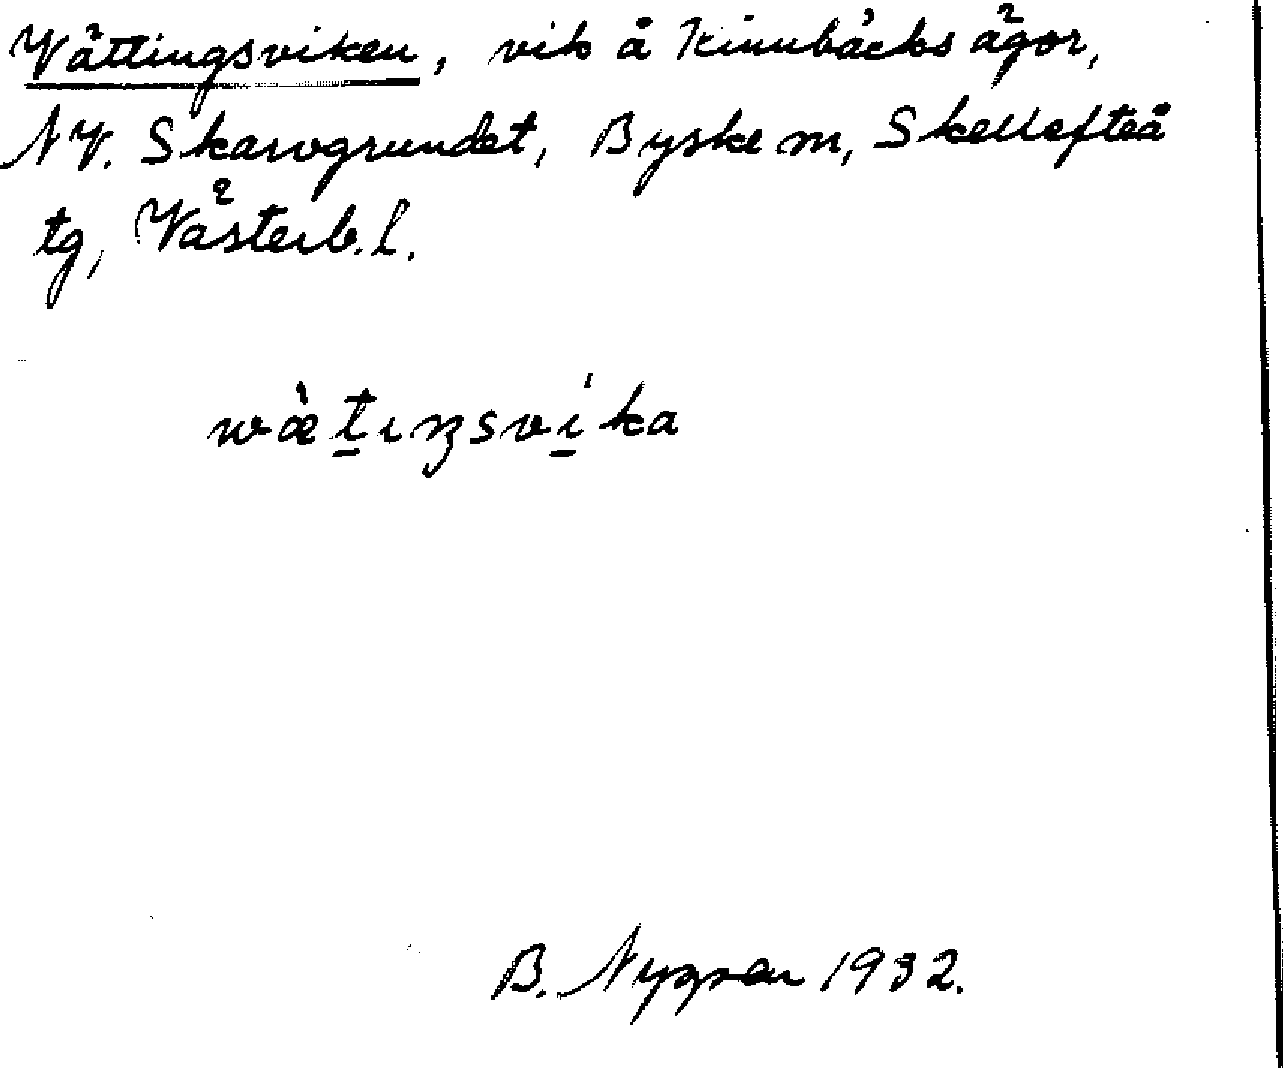 Vättingsviken, vik å Kinnbäcks ägor,
NV. Skarvgrundet, Byske sn, Skellefteå
tg, Västerb. l.
wæ̀t̲ıŋsví̲ka
B. Nygren 1932.